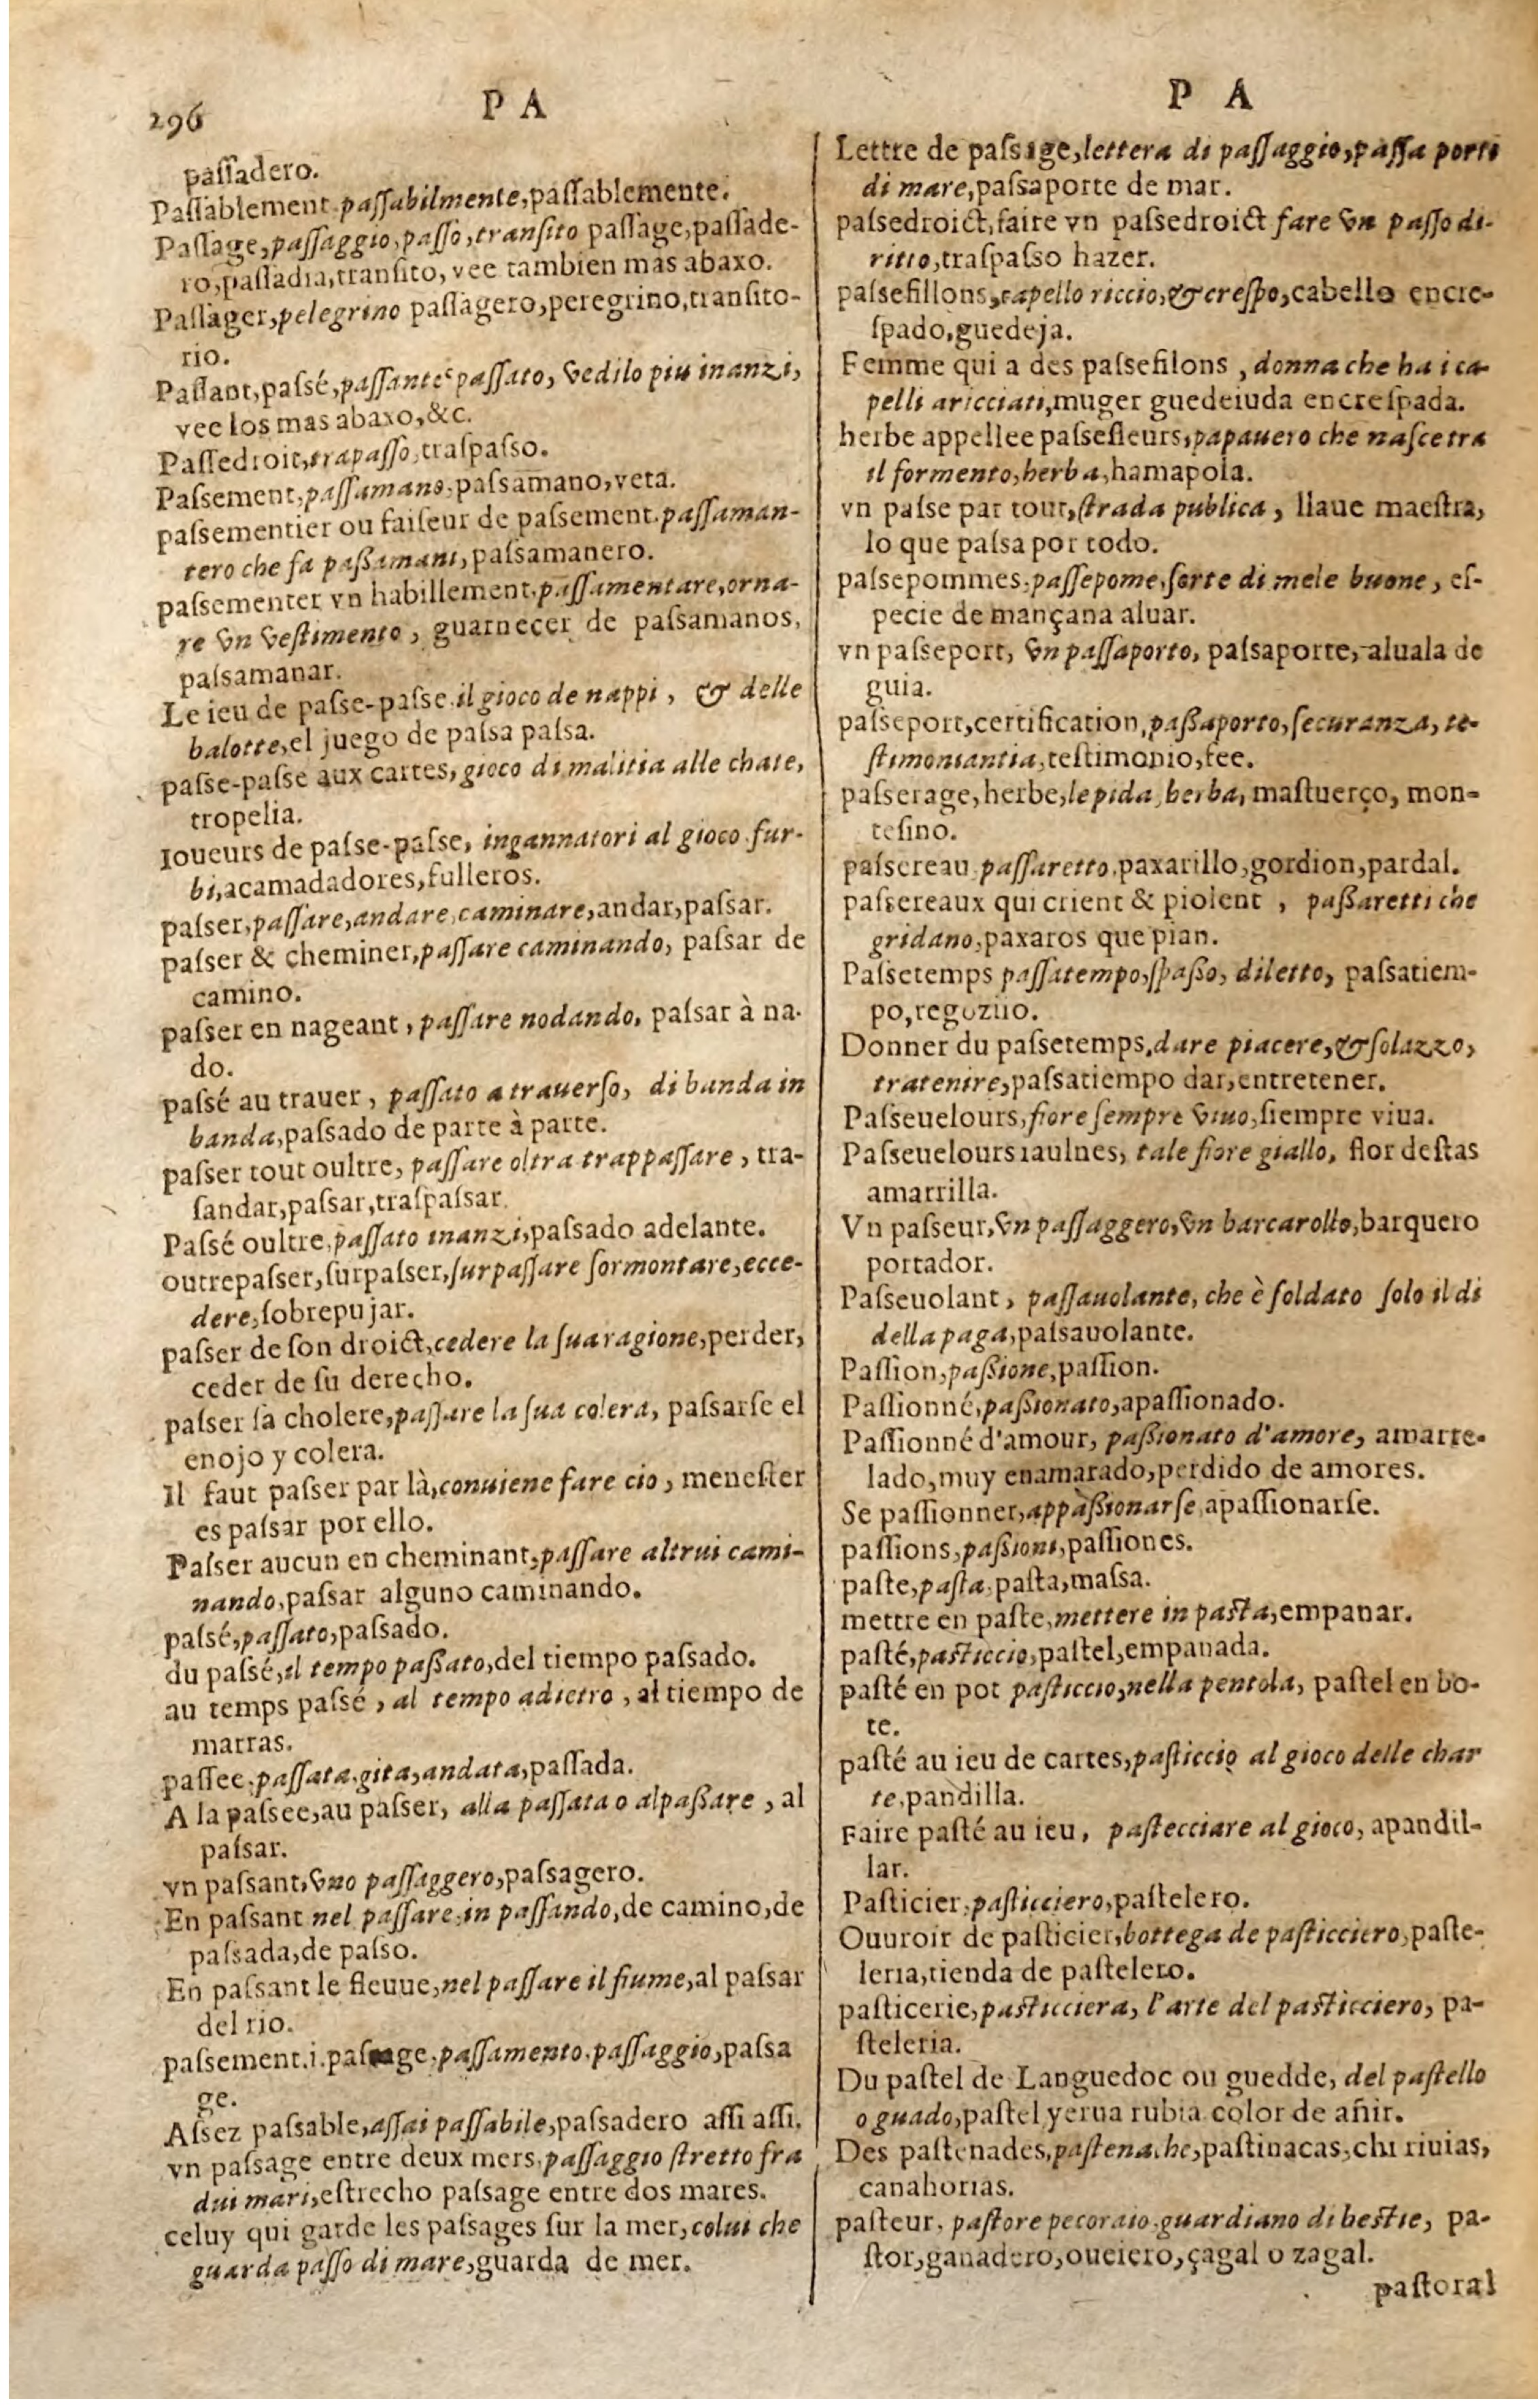 296
P A
passadero.
Passablement, passabilmente, passablemente.
Passage, passaggio, passo, transito passage, passade-
ro, passadia, transito, vee tambien mas abaxo.
Passager, pelegrino passagero, peregrino, transito-
rio.
Passant, passé, passante e passato, vedilo piu inanzi,
vee los mas abaxo, &c.
Passedroit, trapasso, traspasso.
Passement, passamano, passamano, veta.
passementier ou faiseur de passement. passaman-
tero che fa passamani, passamanero.
passementer vn habillement, passamentare, orna-
re vn vestimento, guarnecer de passamanos,
passamanar.
Le ieu de passe-passe. il gioco de nappi, & delle
balotte, el juego de passa passa.
passe-passe aux cartes, gioco di malitia alle chate,
tropelia.
Ioueurs de passe-passe, ingannatori al gioco fur-
bi, acamadadores, fulleros.
passer, passare, andare, caminare, andar, passar.
passer & cheminer, passare caminando, passar de
camino.
passer en nageant, passare nodando, passar à na-
do.
passé au trauer, passato a trauerso, di banda in
banda, passado de parte à parte.
passer tout oultre, passare oltra trappassare, tra-
sandar, passar, traspassar.
Passé oultre, passato inanzi, passado adelante.
outrepasser, surpasser, surpassare sormontare, ecce-
dere, sobrepujar.
passer de son droict, cedere la sua ragione, perder,
ceder de su derecho.
passer sa cholere, passare la sua colera, passarse el
enojo y colera.
Il faut passer par là, conuiene fare cio, menester
es passar por ello.
Passer aucun en cheminant, passare altrui cami-
nando, passar alguno caminando.
passé, passato, passado.
du passé, il tempo passato, del tiempo passado.
au temps passé, al tempo adietro, al tiempo de
marras.
passee, passata, gita, andata, passada.
A la passee, au passer, alla passata o al passare, al
passar.
vn passant, vno passaggero, passagero.
En passant nel passare, in passando, de camino, de
passada, de passo.
En passant le fleuue, nel passare il fiume, al passar
del rio.
passement. i. passage, passamento, passaggio, passa
ge.
Assez passable, assai passabile, passadero assi assi.
vn passage entre deux mers, passaggio stretto fra
dui mari, estrecho passage entre dos mares.
celuy qui garde les passages sur la mer, colui che
guarda passo di mare, guarda de mer.
P A
Lettre de passage, lettera di passaggio, passa porti
di mare, passaporte de mar.
passedroict, faire vn passedroict fare vn passo di-
ritto, traspasso hazer.
passefillons, capello riccio, & crespo, cabello encre-
spado, guedeja.
Femme qui a des passefilons, donna che ha i ca-
pelli aricciati, muger guedeiuda encrespada.
herbe appellee passefleurs, papauero che nasce tra
il formento, herba, hamapola.
vn passe par tour, strada publica, llaue maestra,
lo que passa por todo.
passepommes, passepome, sorte di mele buone, es-
pecie de mançana aluar.
vn passeport, vn passaporto, passaporte, aluala de
guia.
passeport, certification, passaporto, securanza, te-
stimoniantia, testimonio, fee.
passerage, herbe, lepida herba, mastuerço, mon-
tesino.
passereau passaretto, paxarillo, gordion, pardal.
passereaux qui crient & piolent, passaretti che
gridano, paxaros que pian.
Passetemps passatempo, spasso, diletto, passatiem-
po, regozijo.
Donner du passetemps, dare piacere, & solazzo,
tratenire, passatiempo dar, entretener.
Passeuelours, fiore sempre viuo, siempre viua.
Passeuelours iaulnes, tale fiore giallo, flor destas
amarrilla.
Vn passeur, vn passaggero, vn barcarollo, barquero
portador.
Passeuolant, passauolante, che è soldato solo il di
della paga, passauolante.
Passion, passione, passion.
Passionné, passionato, apassionado.
Passionné d'amour, passionato d'amore, amarte-
lado, muy enamarado, perdido de amores.
Se passionner, appassionarse, apassionarse.
passions, passioni, passiones.
paste, pasta, pasta, massa.
mettre en paste, mettere in pasta, empanar.
pasté, pasticcio, pastel, empanada.
pasté en pot pasticcio, nella pentola, pastel en bo-
te.
pasté au ieu de cartes, pasticcio al gioco delle char
te, pandilla.
Faire pasté au ieu, pastecciare al gioco, apandil-
lar.
Pasticier, pasticciero, pastelero.
Ouuroir de pasticier, bottega de pasticciero, paste-
leria, tienda de pastelero.
pasticerie, pasticciera, l'arte del pasticciero, pa-
steleria.
Du pastel de Languedoc ou guedde, del pastello
o guado, pastel yerua rubia color de añir.
Des pastenades, pastenache, pastinacas, chiriuias,
canahorias.
pasteur, pastore pecoraio, guardiano di bestie, pa-
stor, ganadero, oueiero, çagal o zagal.
pastoral